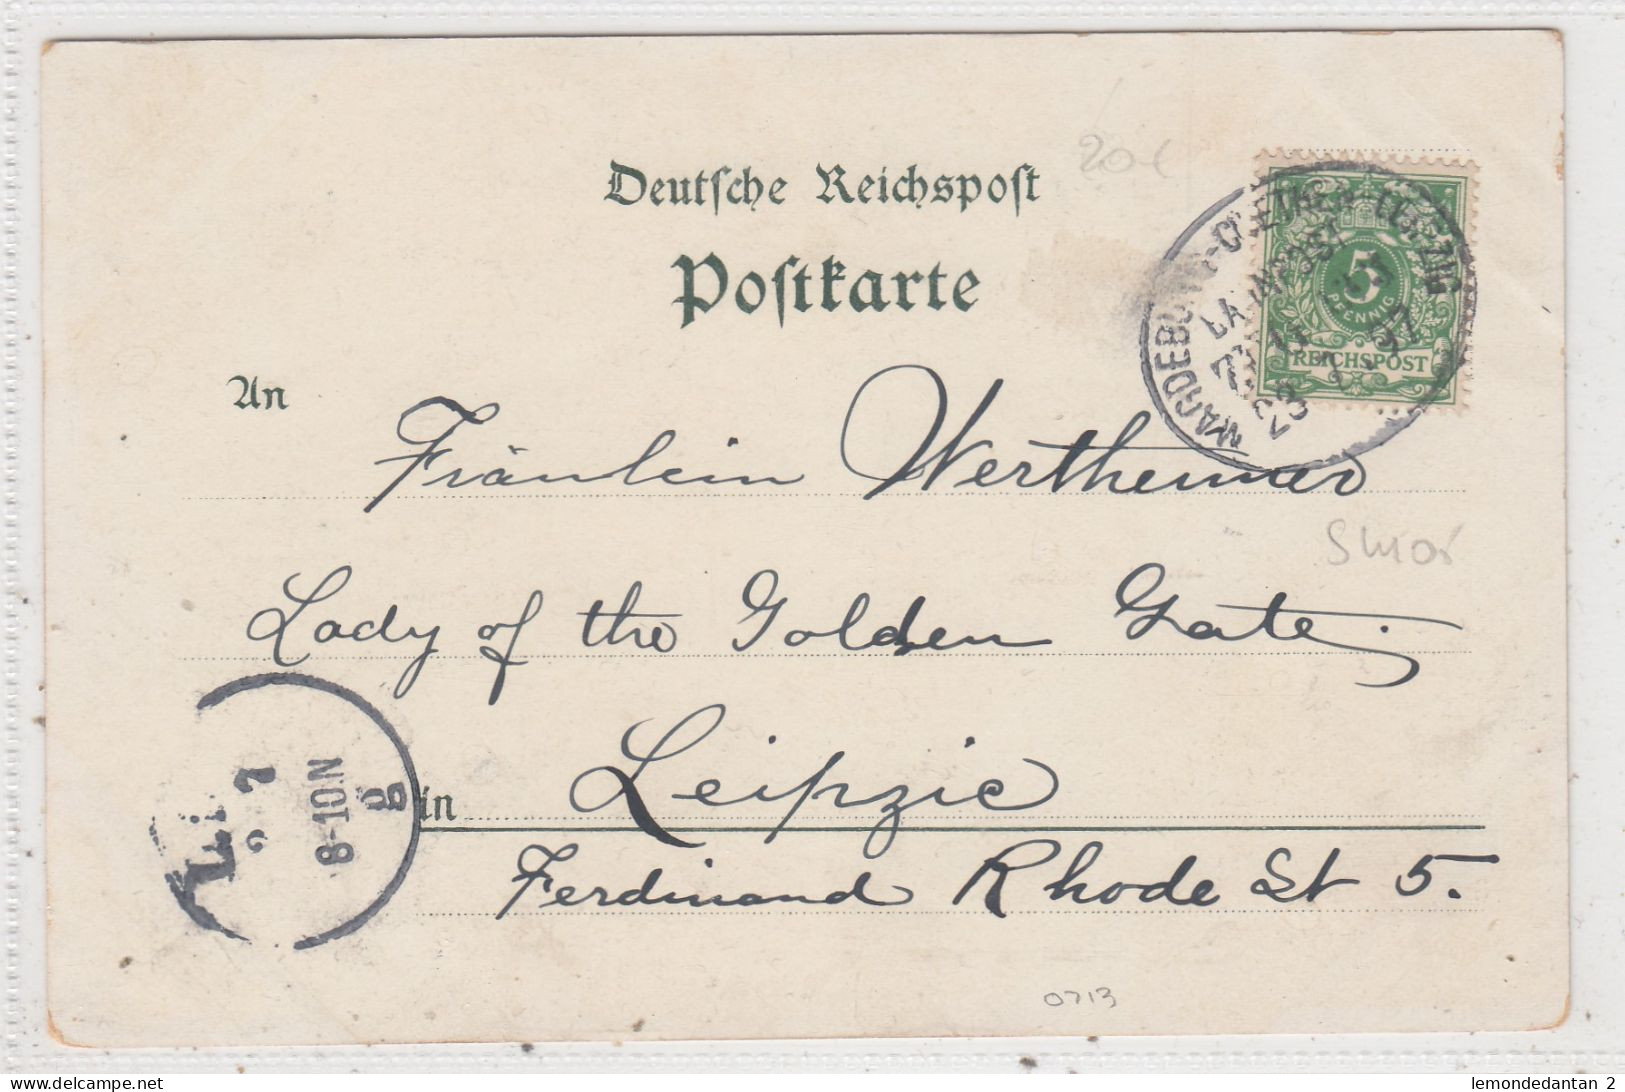 20 €
Deutsche Reichspost
Postkarte
MAGDEBURG-COETHEN-LEIPZIG
BAHNPOST
ZUG
23 7 97
5
PFENNIG
REICHSPOST
An
Fräulein Wertheimer
Lady of the Golden Gate.
in Leipzig
Ferdinand Rhode St 5.
7
8-10.N
8
0713
lemondedantan 2